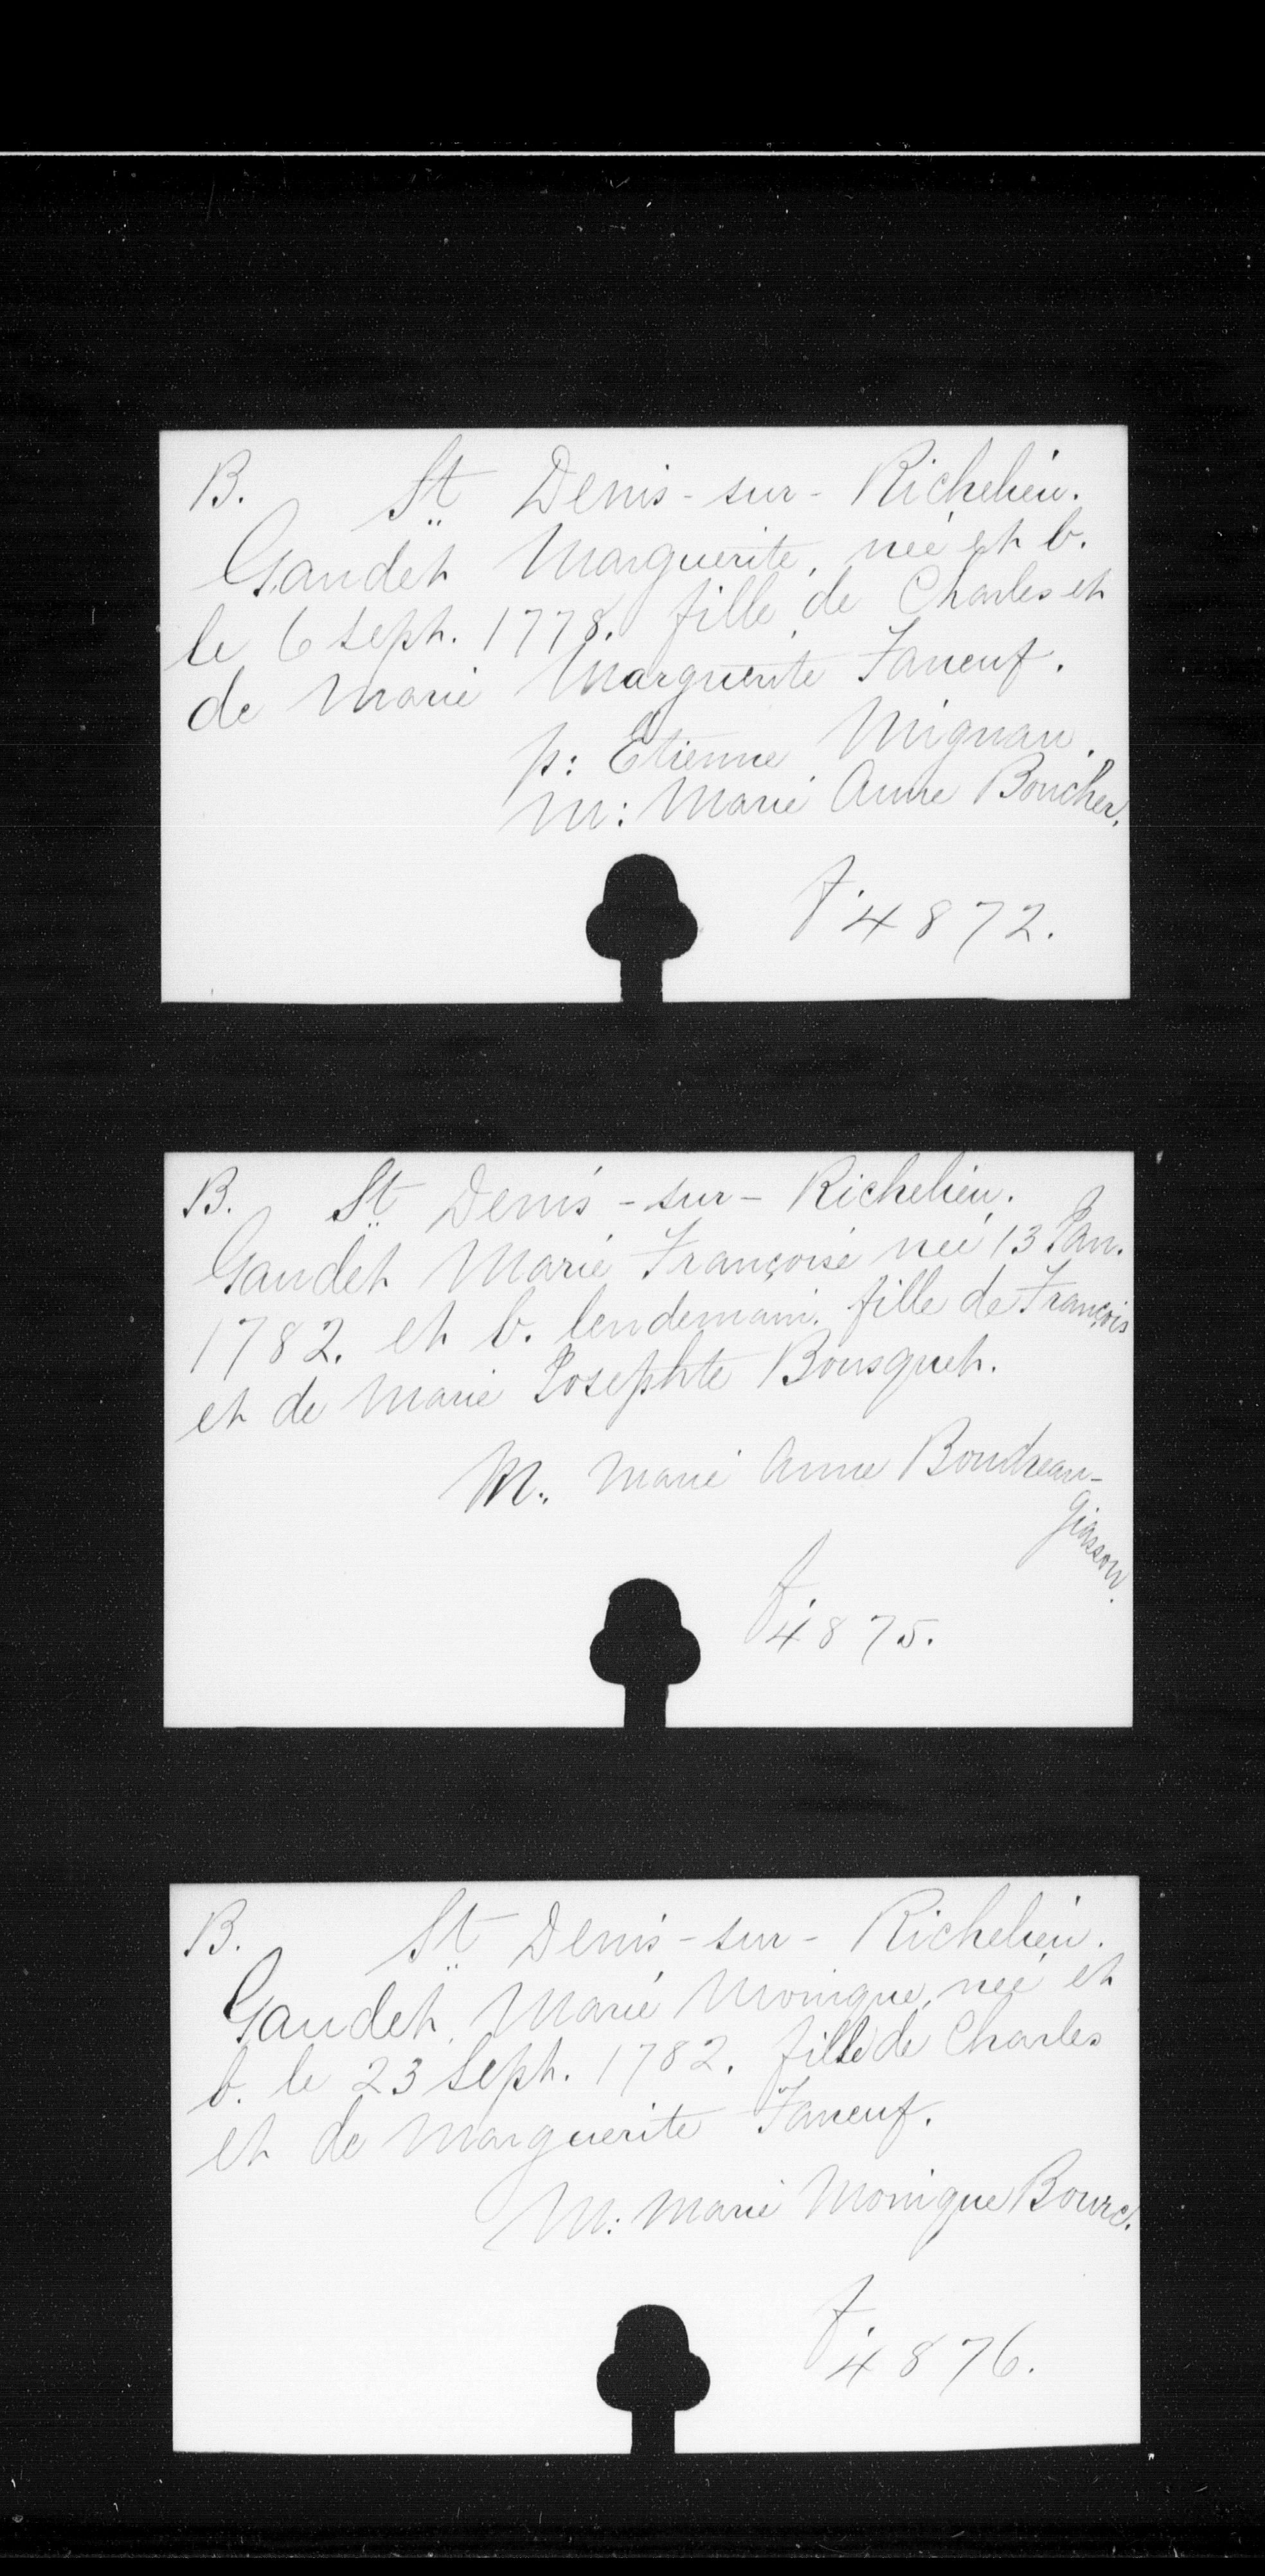 B. St Denis-sur-Richelieu.
Gaudet Marguerite, née et b.
le 6 sept. 1778. fille de Charles et
de Marie Marguerite Faneuf.
p: Etienne Mignau.
M: Marie Anne Boucher.
f. 4872.
B. St Denis-sur-Richelieu.
Gaudet Marie Françoise née 13 Jan.
1782. et b. lendemain. fille de François
et de Marie Josephte Bousquet.
M. Marie Anne Boudreau-
Giasson.
f. 4875.
B. St Denis-sur-Richelieu.
Gaudet, Marie Monique, née et
b. le 23 Sept. 1782. fille de Charles
et de Marguerite Faneuf.
M: Marie Monique Bourc.
f. 4876.